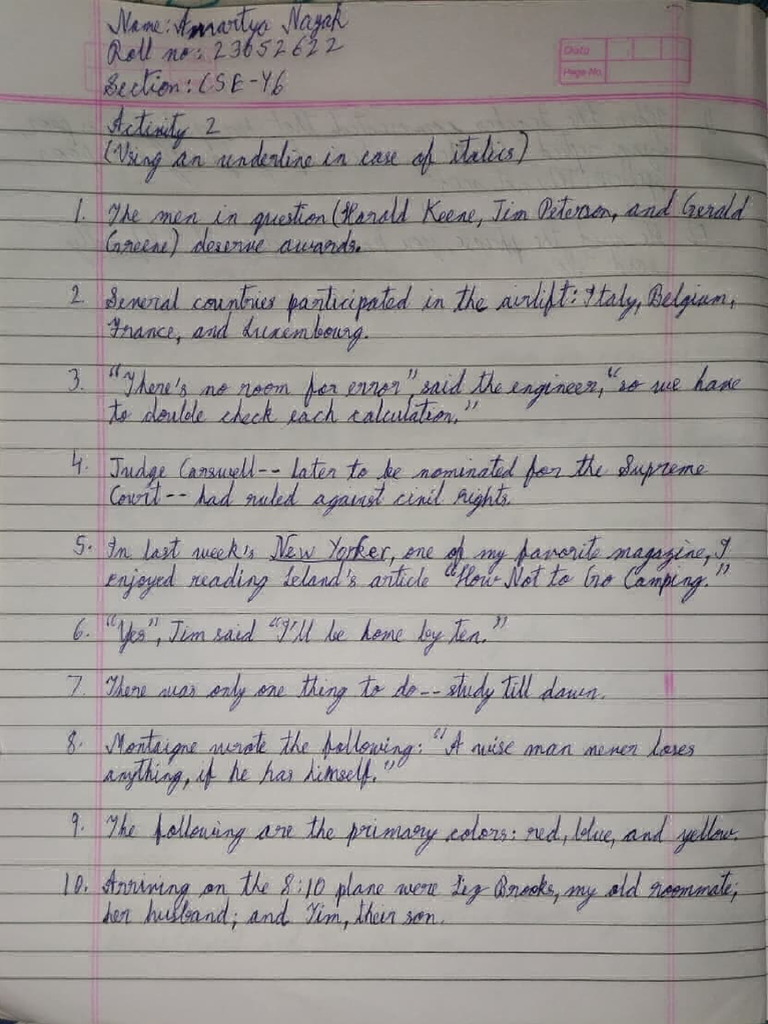 Name: Amartya Nayak
Roll no: 23052622
Section: CSE-46
Date
Page No.
Activity 2
(Using an underline in case of italics)
1. The men in question (Harald Keene, Jim Peterson, and Gerald
Greene) deserve awards.
2. Several countries participated in the airlift: Italy, Belgium,
France, and Luxembourg.
3. "There's no room for error", said the engineer, "so we have
to double check each calculation."
4. Judge Carswell-- later to be nominated for the Supreme
Court-- had ruled against civil rights.
5. In last week's New Yorker, one of my favorite magazine, I
enjoyed reading Leland's article "How Not to Go Camping."
6. "Yes", Jim said "I'll be home by ten."
7. There was only one thing to do-- study till dawn.
8. Montaigne wrote the following: "A wise man never loses
anything, if he has himself."
9. The following are the primary colors: red, blue, and yellow.
10. Arriving on the 8:10 plane were Liz Brooks, my old roommate;
her husband; and Tim, their son.